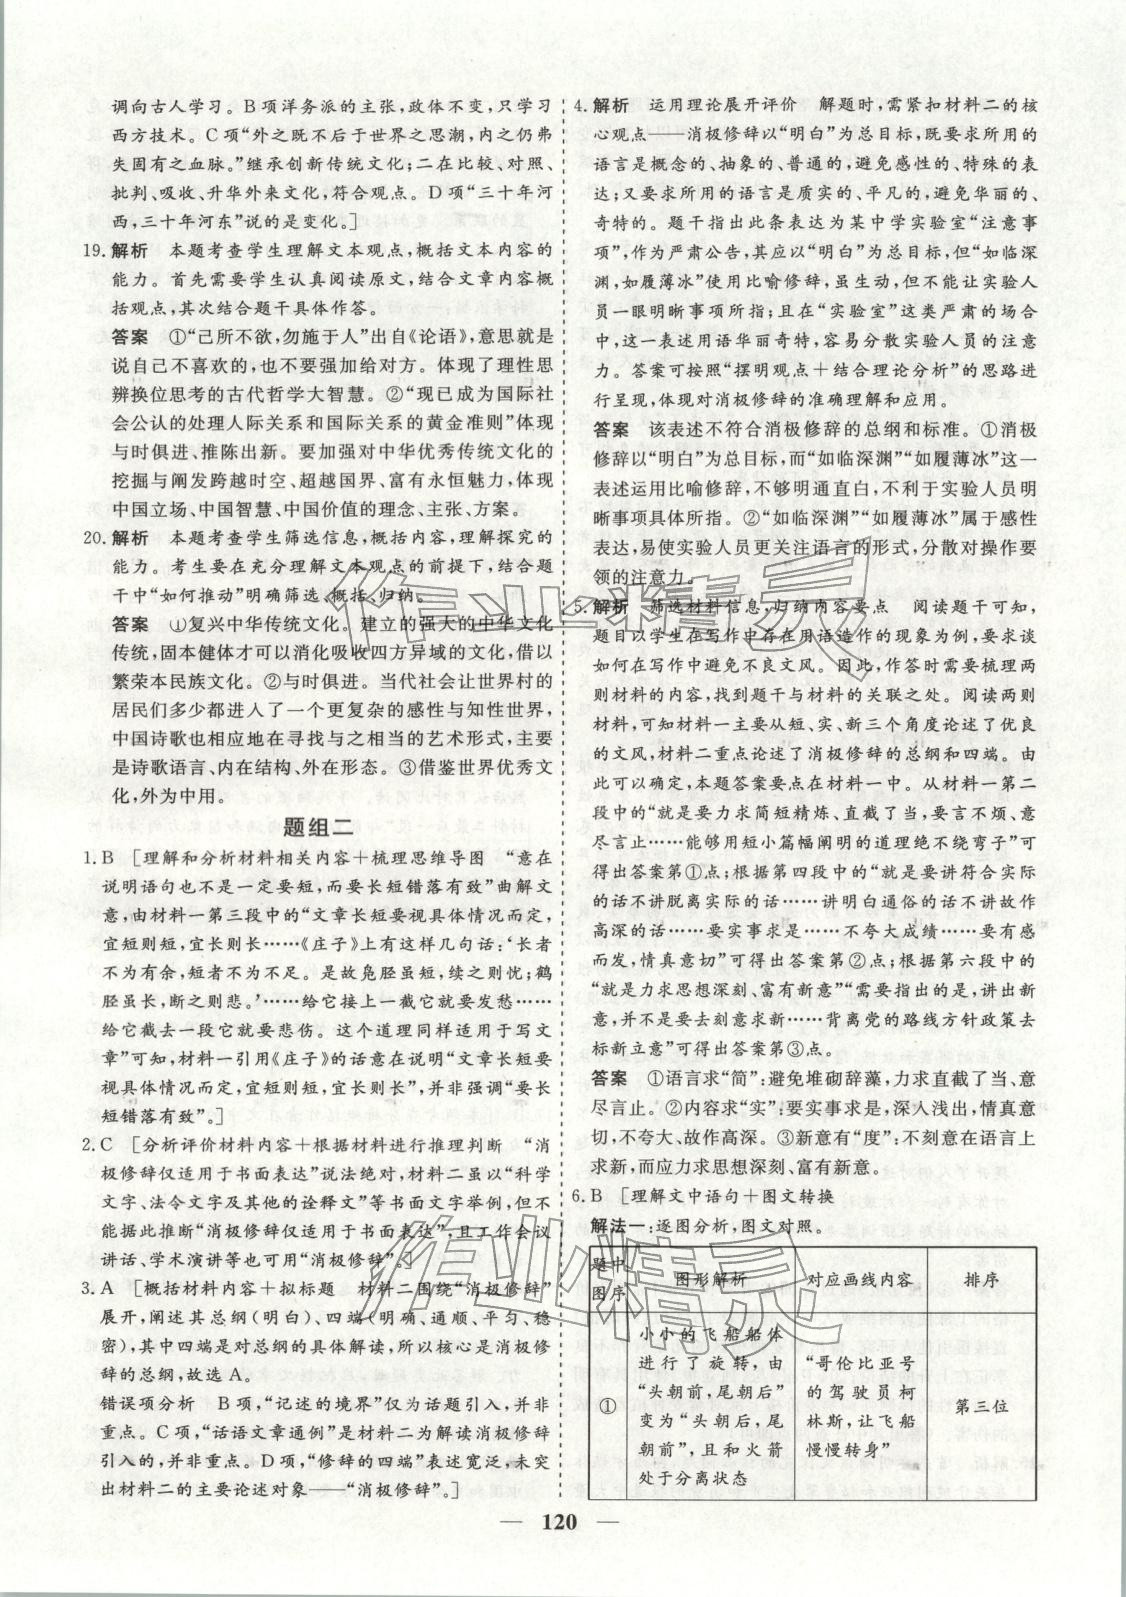 调向古人学习。B 项洋务派的主张,政体不变,只学习
西方技术。C 项“外之既不后于世界之思潮,内之仍弗
失固有之血脉。”继承创新传统文化;二在比较、对照、
批判、吸收、升华外来文化,符合观点。D 项“三十年河
西,三十年河东”说的是变化。]
19. 解析　本题考查学生理解文本观点,概括文本内容的
能力。首先需要学生认真阅读原文,结合文章内容概
括观点,其次结合题干具体作答。
答案　①“己所不欲,勿施于人”出自《论语》,意思就是
说自己不喜欢的,也不要强加给对方。体现了理性思
辨换位思考的古代哲学大智慧。②“现已成为国际社
会公认的处理人际关系和国际关系的黄金准则”体现
与时俱进、推陈出新。要加强对中华优秀传统文化的
挖掘与阐发跨越时空、超越国界、富有永恒魅力,体现
中国立场、中国智慧、中国价值的理念、主张、方案。
20. 解析　本题考查学生筛选信息,概括内容,理解探究的
能力。考生要在充分理解文本观点的前提下,结合题
干中“如何推动”明确筛选、概括、归纳。
答案　①复兴中华传统文化。建立的强大的中华文化
传统,固本健体才可以消化吸收四方异域的文化,借以
繁荣本民族文化。②与时俱进。当代社会让世界村的
居民们多少都进入了一个更复杂的感性与知性世界,
中国诗歌也相应地在寻找与之相当的艺术形式,主要
是诗歌语言、内在结构、外在形态。③借鉴世界优秀文
化,外为中用。
题组二
1. B　[理解和分析材料相关内容＋梳理思维导图　“意在
说明语句也不是一定要短,而要长短错落有致”曲解文
意,由材料一第三段中的“文章长短要视具体情况而定,
宜短则短,宜长则长……《庄子》上有这样几句话:‘长者
不为有余,短者不为不足。是故凫胫虽短,续之则忧;鹤
胫虽长,断之则悲。’……给它接上一截它就要发愁……
给它截去一段它就要悲伤。这个道理同样适用于写文
章”可知,材料一引用《庄子》的话意在说明“文章长短要
视具体情况而定,宜短则短,宜长则长”,并非强调“要长
短错落有致”。]
2. C　[分析评价材料内容＋根据材料进行推理判断　“消
极修辞仅适用于书面表达”说法绝对,材料二虽以“科学
文字、法令文字及其他的诠释文”等书面文字举例,但不
能据此推断“消极修辞仅适用于书面表达”,且工作会议
讲话、学术演讲等也可用“消极修辞”。]
3. A　[概括材料内容＋拟标题　材料二围绕“消极修辞”
展开,阐述其总纲(明白)、四端(明确、通顺、平匀、稳
密),其中四端是对总纲的具体解读,所以核心是消极修
辞的总纲,故选 A。
错误项分析　B 项,“记述的境界”仅为话题引入,并非
重点。C 项,“话语文章通例”是材料二为解读消极修辞
引入的,并非重点。D 项,“修辞的四端”表述宽泛,未突
出材料二的主要论述对象——“消极修辞”。]
4. 解析　运用理论展开评价　解题时,需紧扣材料二的核
心观点——消极修辞以“明白”为总目标,既要求所用的
语言是概念的、抽象的、普通的,避免感性的、特殊的表
达;又要求所用的语言是质实的、平凡的,避免华丽的、
奇特的。题干指出此条表达为某中学实验室“注意事
项”,作为严肃公告,其应以“明白”为总目标,但“如临深
渊,如履薄冰”使用比喻修辞,虽生动,但不能让实验人
员一眼明晰事项所指;且在“实验室”这类严肃的场合
中,这一表述用语华丽奇特,容易分散实验人员的注意
力。答案可按照“摆明观点＋结合理论分析”的思路进
行呈现,体现对消极修辞的准确理解和应用。
答案　该表述不符合消极修辞的总纲和标准。①消极
修辞以“明白”为总目标,而“如临深渊”“如履薄冰”这一
表述运用比喻修辞,不够明通直白,不利于实验人员明
晰事项具体所指。②“如临深渊”“如履薄冰”属于感性
表达,易使实验人员更关注语言的形式,分散对操作要
领的注意力。
5. 解析　筛选材料信息,归纳内容要点　阅读题干可知,
题目以学生在写作中存在用语造作的现象为例,要求谈
如何在写作中避免不良文风。因此,作答时需要梳理两
则材料的内容,找到题干与材料的关联之处。阅读两则
材料,可知材料一主要从短、实、新三个角度论述了优良
的文风,材料二重点论述了消极修辞的总纲和四端。由
此可以确定,本题答案要点在材料一中。从材料一第二
段中的“就是要力求简短精炼、直截了当,要言不烦、意
尽言止……能够用短小篇幅阐明的道理绝不绕弯子”可
得出答案第①点;根据第四段中的“就是要讲符合实际
的话不讲脱离实际的话……讲明白通俗的话不讲故作
高深的话……要实事求是……不夸大成绩……要有感
而发,情真意切”可得出答案第②点;根据第六段中的
“就是力求思想深刻、富有新意”“需要指出的是,讲出新
意,并不是要去刻意求新……背离党的路线方针政策去
标新立意”可得出答案第③点。
答案　①语言求“简”:避免堆砌辞藻,力求直截了当、意
尽言止。②内容求“实”:要实事求是,深入浅出,情真意
切,不夸大、故作高深。③新意有“度”:不刻意在语言上
求新,而应力求思想深刻、富有新意。
6. B　[理解文中语句＋图文转换
解法一:逐图分析,图文对照。
题中图序　图形解析　对应画线内容　排序
①　小小的飞船船体进行了旋转,由“头朝前,尾朝后”变为“头朝后,尾朝前”,且和火箭处于分离状态　“哥伦比亚号的驾驶员柯林斯,让飞船慢慢转身”　第三位
— 120 —
作业精灵
作业精灵